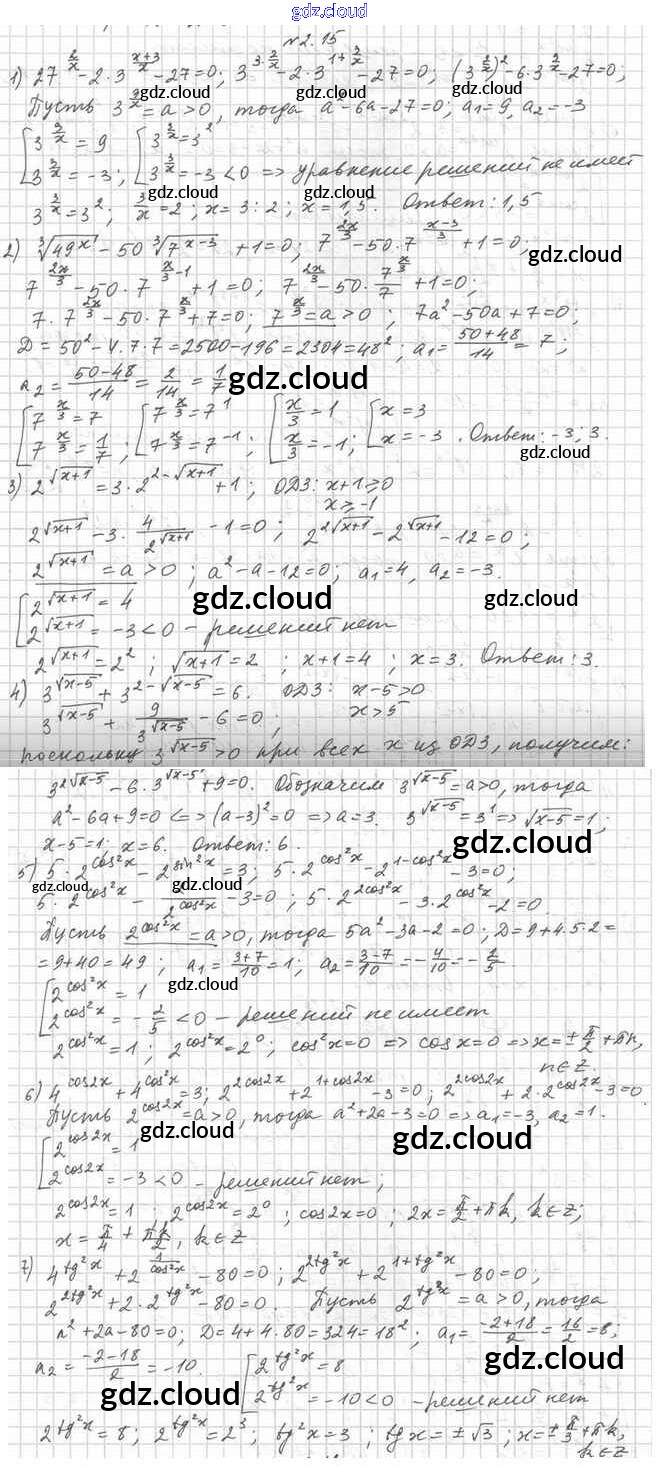 gdz.cloud
№2.15
1) 27^(2/x) - 2·3^((x+3)/x) - 27=0; 3^(3·2/x) - 2·3^(1+3/x) - 27=0; (3^(3/x))² - 6·3^(3/x) - 27=0;
Пусть 3^(3/x) = a > 0, тогда a² - 6a - 27 = 0; a₁ = 9, a₂ = -3
[3^(3/x) = 9 [3^(3/x) = 3²
[3^(3/x) = -3; [3^(3/x) = -3 < 0 => уравнение решений не имеет
gdz.cloud gdz.cloud
3^(3/x) = 3²; 3/x = 2; x = 3:2; x = 1,5. Ответ: 1,5
2) ³√(49^x) - 50 ³√(7^(x-3)) + 1 = 0; 7^(2x/3) - 50·7^((x-3)/3) + 1 = 0;
gdz.cloud
7^(2x/3) - 50·7^(x/3-1) + 1 = 0; 7^(2x/3) - 50·7^(x/3)/7 + 1 = 0;
7·7^(2x/3) - 50·7^(x/3) + 7 = 0; 7^(x/3) = a > 0; 7a² - 50a + 7 = 0;
D = 50² - 4·7·7 = 2500 - 196 = 2304 = 48²; a₁ = (50+48)/14 = 7;
a₂ = (50-48)/14 = 2/14 = 1/7 gdz.cloud
[7^(x/3) = 7 [7^(x/3) = 7¹ [x/3 = 1 [x = 3
[7^(x/3) = 1/7; [7^(x/3) = 7^(-1); [x/3 = -1; [x = -3. Ответ: -3; 3.
gdz.cloud
3) 2^√(x+1) = 3·2^(2-√(x+1)) + 1; ОДЗ: x+1 ⩾ 0
x ⩾ -1
2^√(x+1) - 3·4/2^√(x+1) - 1 = 0; 2^(2√(x+1)) - 2^√(x+1) - 12 = 0;
2^√(x+1) = a > 0; a² - a - 12 = 0; a₁ = 4, a₂ = -3.
[2^√(x+1) = 4 gdz.cloud gdz.cloud
[2^√(x+1) = -3 < 0 - решений нет
2^√(x+1) = 2²; √(x+1) = 2; x+1 = 4; x = 3. Ответ: 3.
4) 3^√(x-5) + 3^(2-√(x-5)) = 6. ОДЗ: x-5 > 0
3^√(x-5) + 9/3^√(x-5) - 6 = 0; x > 5
поскольку 3^√(x-5) > 0 при всех x из ОДЗ, получим:
3^(2√(x-5)) - 6·3^√(x-5) + 9 = 0. Обозначим 3^√(x-5) = a > 0, тогда
a² - 6a + 9 = 0 <=> (a-3)² = 0 => a = 3. 3^√(x-5) = 3¹ => √(x-5) = 1;
x-5 = 1; x = 6. Ответ: 6. gdz.cloud
5) 5·2^(cos²x) - 2^(sin²x) = 3; 5·2^(cos²x) - 2^(1-cos²x) - 3 = 0;
gdz.cloud gdz.cloud
5·2^(cos²x) - 2/2^(cos²x) - 3 = 0; 5·2^(2cos²x) - 3·2^(cos²x) - 2 = 0
Пусть 2^(cos²x) = a > 0, тогда 5a² - 3a - 2 = 0; D = 9 + 4·5·2 =
= 9 + 40 = 49; a₁ = (3+7)/10 = 1; a₂ = (3-7)/10 = -4/10 = -2/5
[2^(cos²x) = 1 gdz.cloud
[2^(cos²x) = -2/5 < 0 - решений не имеет
2^(cos²x) = 1; 2^(cos²x) = 2⁰; cos²x = 0 => cos x = 0 => x = ±π/2 + πn,
n ∈ Z.
6) 4^(cos2x) + 4^(cos²x) = 3; 2^(2cos2x) + 2^(1+cos2x) - 3 = 0; 2^(2cos2x) + 2·2^(cos2x) - 3 = 0.
Пусть 2^(cos2x) = a > 0, тогда a² + 2a - 3 = 0 => a₁ = -3, a₂ = 1.
[2^(cos2x) = 1 gdz.cloud gdz.cloud
[2^(cos2x) = -3 < 0 - решений нет;
2^(cos2x) = 1; 2^(cos2x) = 2⁰; cos2x = 0; 2x = π/2 + πk, k ∈ Z;
x = π/4 + πk/2, k ∈ Z
7) 4^(tg²x) + 2^(1/cos²x) - 80 = 0; 2^(2tg²x) + 2^(1+tg²x) - 80 = 0;
2^(2tg²x) + 2·2^(tg²x) - 80 = 0. Пусть 2^(tg²x) = a > 0, тогда
a² + 2a - 80 = 0; D = 4 + 4·80 = 324 = 18²; a₁ = (-2+18)/2 = 16/2 = 8;
a₂ = (-2-18)/2 = -10. [2^(tg²x) = 8 gdz.cloud
gdz.cloud [2^(tg²x) = -10 < 0 - решений нет
2^(tg²x) = 8; 2^(tg²x) = 2³; tg²x = 3; tg x = ±√3; x = ±π/3 + πk,
gdz.cloud k ∈ Z